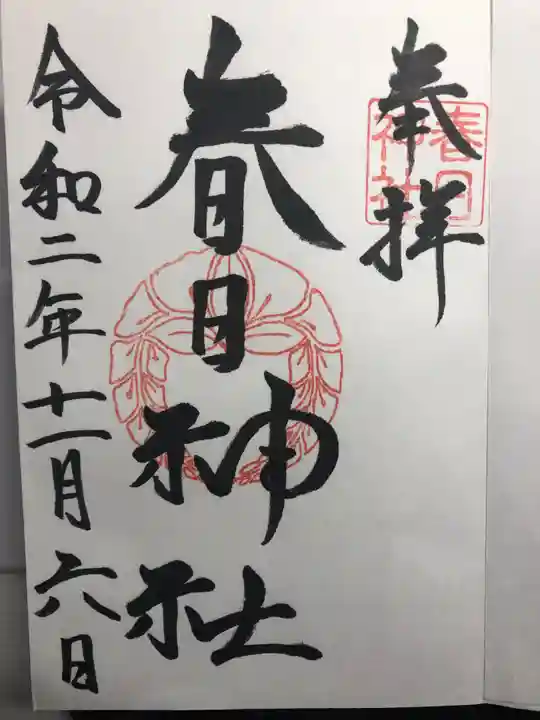 奉拝
春日神社
春日神社
令和二年十一月六日